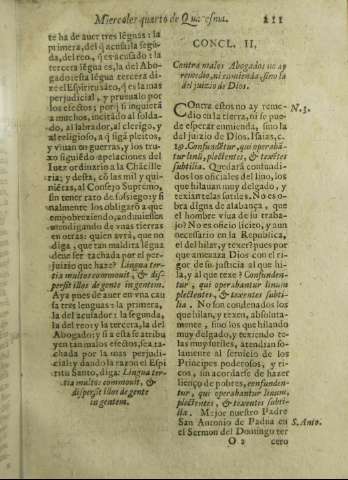 Miercoles quarto de Quaresma.
211
te ha de auer tres lēguas: la
primera, del q̃ acusa: la segũ-
da, del reo, q̃ es acusado: la
tercera lẽgua es, la del Abo-
gado: esta lẽgua tercera di-
ze el Espiritu sãto, q̃ es la mas
perjudicial, y prueualo por
los efectos; por q̃ si inquieta
a muchos, incitado al solda-
do, al labrador, al clerigo, y
al religioso, a q̃ siga pleitos,
y viuan en guerras, y los tru-
xo siguiẽdo apelaciones del
Iuez ordinario a la Chãcille
ria; y desta, cõ las mil y qui-
niẽtas, al Consejo Supremo,
sin tener rato de sosiego; y fi
nalmente los obligarõ a que
empobreziendo, anduuiessen
mendigando de vnas tierras
en otras: quien avrà, que no
diga, que tan maldita lẽgua
deue ser tachada por el per-
juizio que haze? Lingua ter-
tia multos commouit, & dis-
persit illos de gente in gentem.
Aya pues de auer en vna cau
sa tres lenguas: la primera,
la del acusador: la segunda,
la del reo: y la tercera, la del
Abogado: y si a esta se atribu
yen tan malos efectos, sea ta-
chada por la mas perjudi-
cial; y dando la razon el Espi
ritu Santo, diga: Lingua ter-
tia multos commouit, &
dispersit illos de gente
in gentem.
CONCL. II.
Contra malos Abogados no ay
remedio, ni enmienda, sino la
del juizio de Dios.
COntra estos no ay reme-
dio en la tierra, ni se pue-
de esperar enmienda, sino la
del juizio de Dios. Isaias, c.
19. Confundẽtur, qui operabã-
tur linũ, plectentes, & texẽtes
subtilia. Quedarã confundi-
dos los oficiales del lino, los
que hilauan muy delgado, y
texian telas sutiles. No es o-
bra digna de alabança, que
el hombre viua de su traba-
jo? No es oficio licito, y aun
necessario en la Republica,
el del hilar, y texer? pues por
que amenaza Dios con el ri-
gor de su justicia al que hi-
la, y al que texe? Confunden-
tur, qui operabantur linum
plectentes, & texentes subti-
lia. No son condenados los
que hilan, y texen, absoluta-
mente, sino los que hilando
muy delgado, y texiendo te-
las muy sutiles, atendian so-
lamente al seruicio de los
Principes poderosos, y ri-
cos, sin acordarse de hazer
lienço de pobres, confunden-
tur, qui operabantur linum,
plectentes, & texentes subti-
lia. Mejor nuestro Padre
San Antonio de Padua en
el Sermon del Domingo ter
O 2 cero
N. 3.
S. Anto.